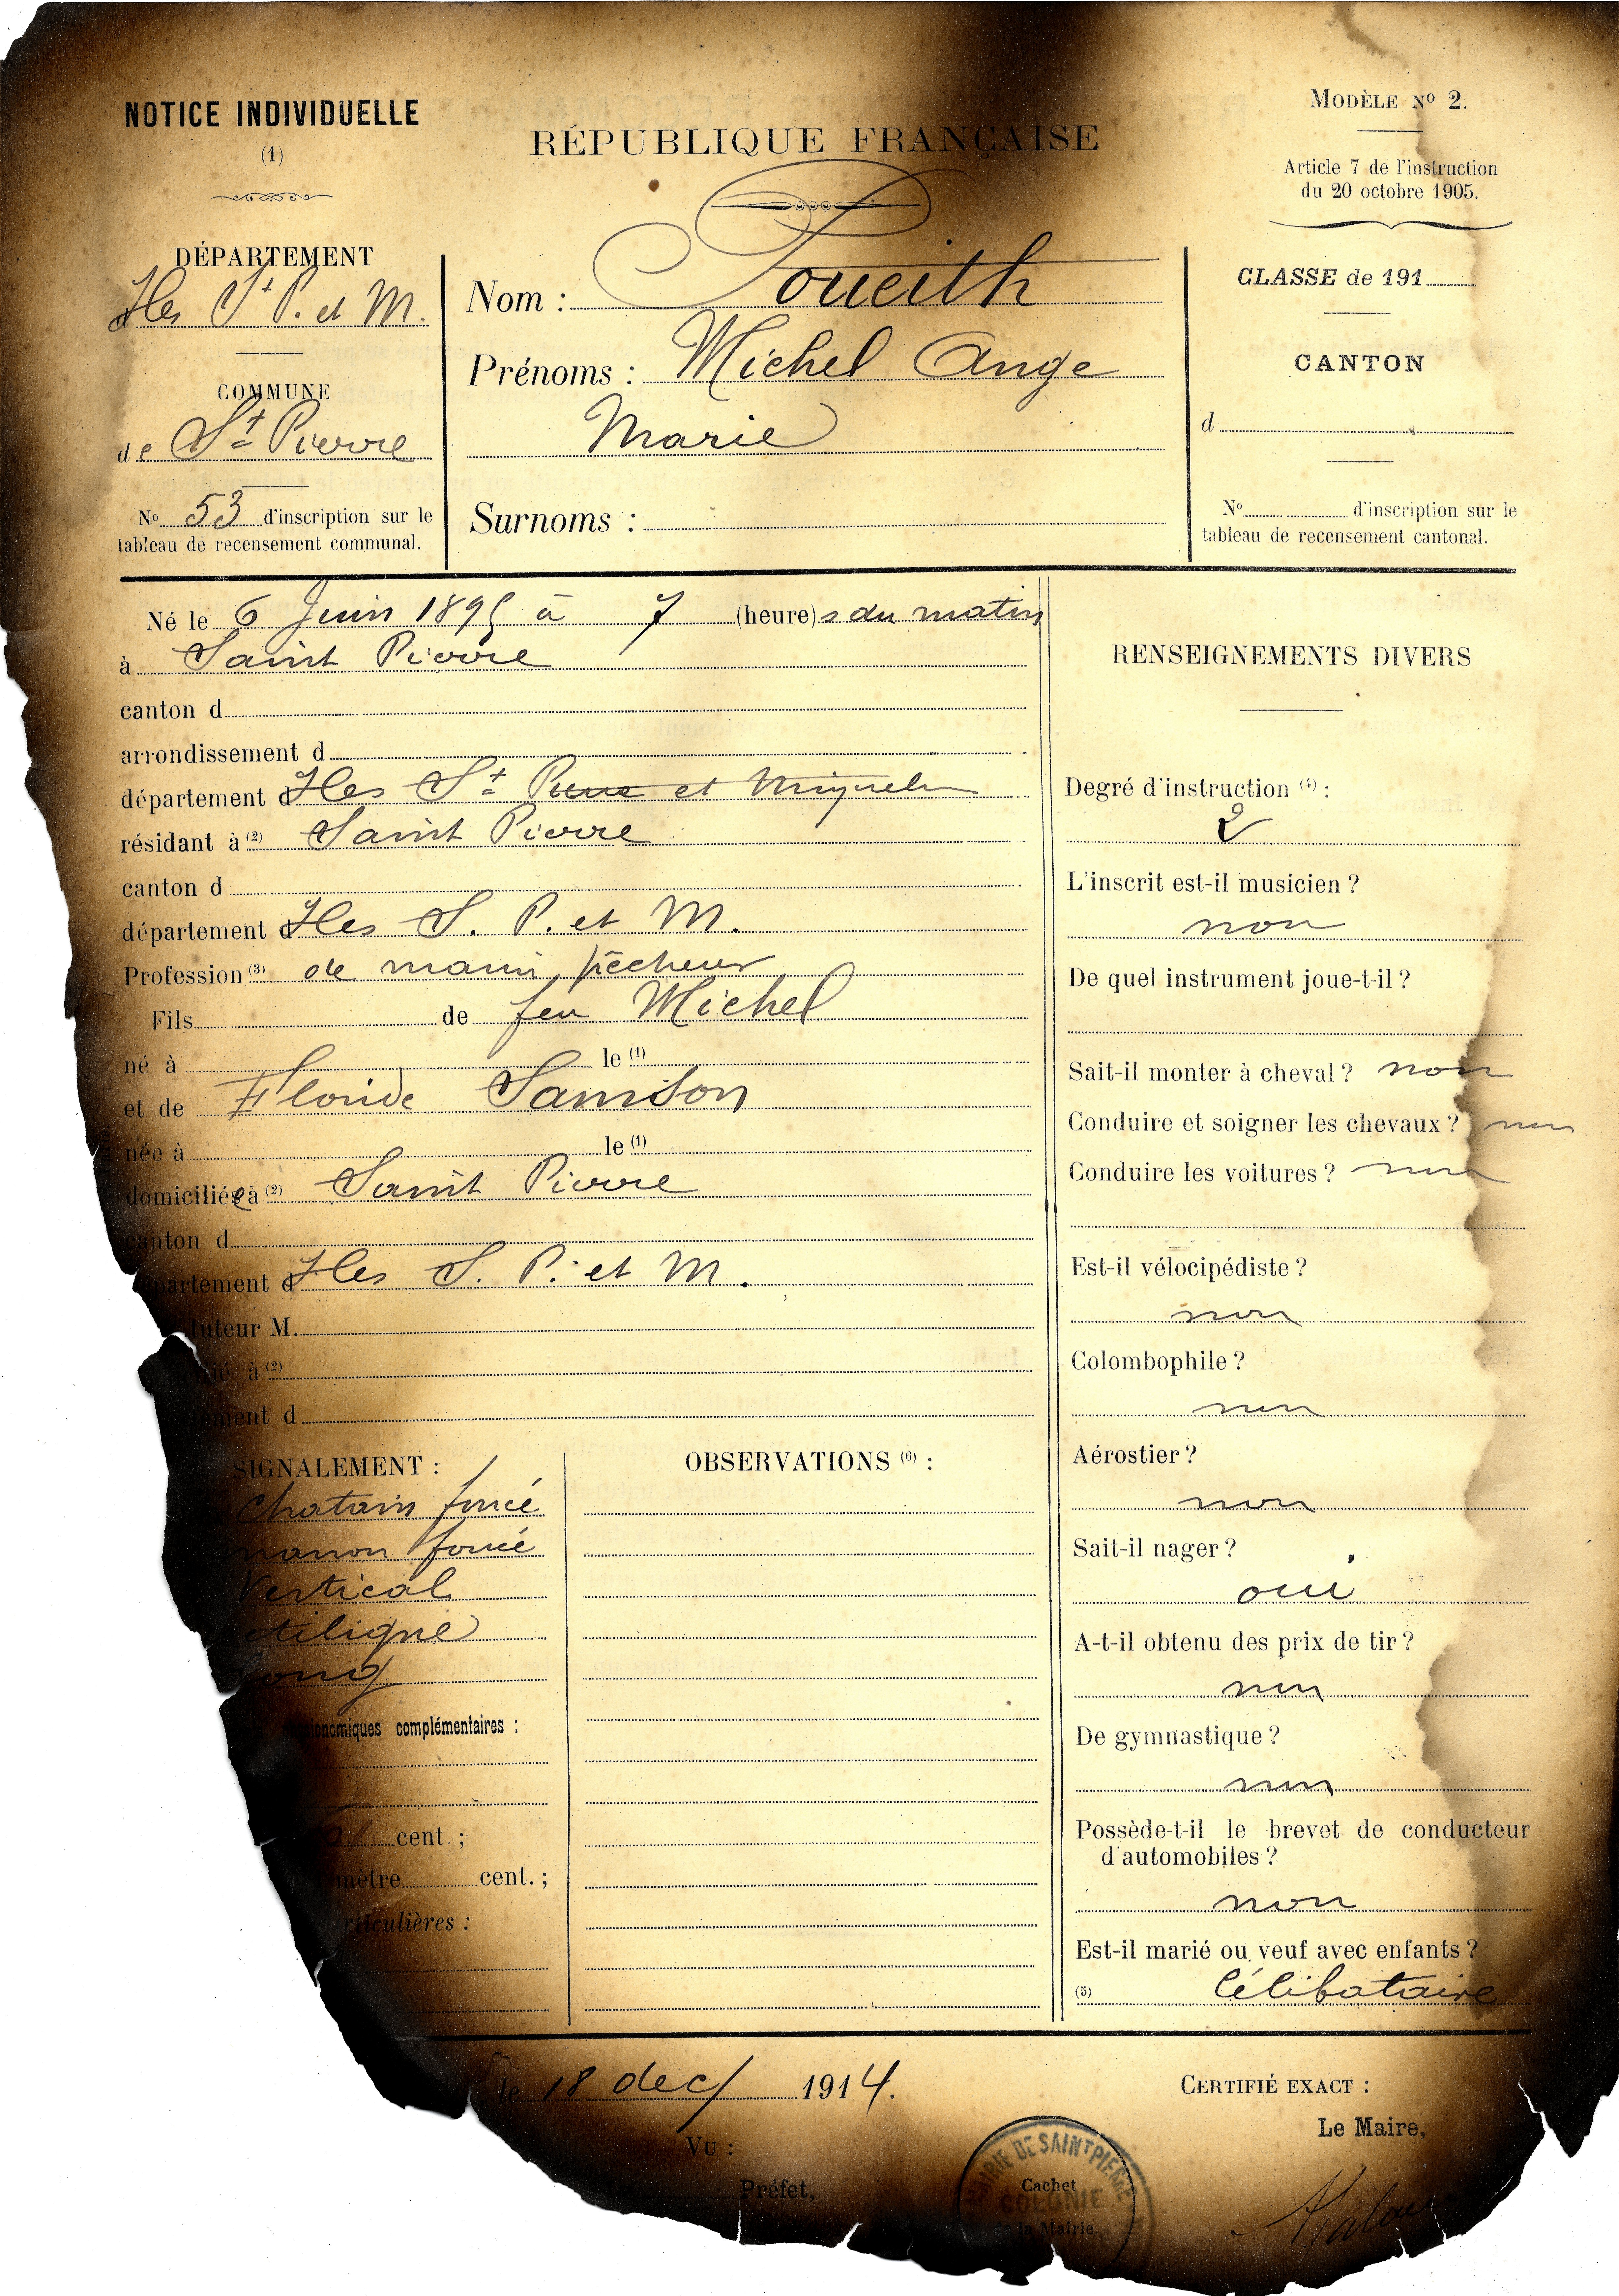 NOTICE INDIVIDUELLE
(1)
RÉPUBLIQUE FRANÇAISE
MODÈLE Nº 2.
Article 7 de l'instruction
du 20 octobre 1905.
DÉPARTEMENT
Iles St P. et M.
COMMUNE
de St Pierre
Nº 53 d'inscription sur le
tableau de recensement communal.
Nom :
Prénoms : Michel Ange
Marie
Surnoms :
CLASSE de 191
CANTON
d
Nº d'inscription sur le
tableau de recensement cantonal.
Né le 6 Juin 1895 à 7 (heure)s du matin
à Saint Pierre
canton d
arrondissement d
département d Iles St Pierre et Miquelon
résidant à (2) Saint Pierre
canton d
département d Iles S. P. et M.
Profession (3) de marin pêcheur
Fils de feu Michel
né à le (1)
et de Floride Samson
née à le (1)
domiciliée à (2) Saint Pierre
canton d
partement d Iles S. P. et M.
tuteur M.
à (2)
ement d
SIGNALEMENT :
Chatain foncé
marron foncé
Vertical
ctiligne
long
onomiques complémentaires :
cent. ;
mètre cent. ;
articulières :
OBSERVATIONS (6) :
RENSEIGNEMENTS DIVERS
Degré d'instruction (4) :
2
L'inscrit est-il musicien ?
non
De quel instrument joue-t-il ?
Sait-il monter à cheval ? non
Conduire et soigner les chevaux ? non
Conduire les voitures ? non
Est-il vélocipédiste ?
non
Colombophile ?
non
Aérostier ?
non
Sait-il nager ?
oui
A-t-il obtenu des prix de tir ?
non
De gymnastique ?
non
Possède-t-il le brevet de conducteur
d'automobiles ?
non
Est-il marié ou veuf avec enfants ?
(5) Célibataire
le 18 dec/ 1914.
VU :
Préfet,
MAIRIE DE SAINT PIERRE
COLONIE
Cachet
de la Mairie.
CERTIFIÉ EXACT :
Le Maire,